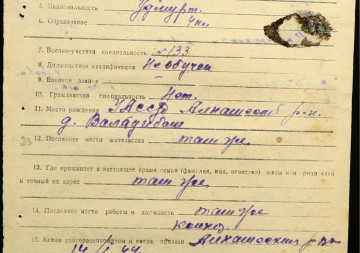 5. Национальность Удмурт.
6. Образование 4 кл.
7. Военно-учетная специальность №133
8. Должностная квалификация Необучен
9. Военное звание
10. Гражданская специальность Нет.
11. Место рождения УАССР Алнашский р-н.
д.
12. Последнее место жительства там же
13. Где проживает в настоящее время семья (фамилия, имя, отчество) жены или родителей
и точный их адрес там же
14. Последнее место работы и должность там же
колхоз
15. Каким райгорвоенкоматом и когда призван Алнашский